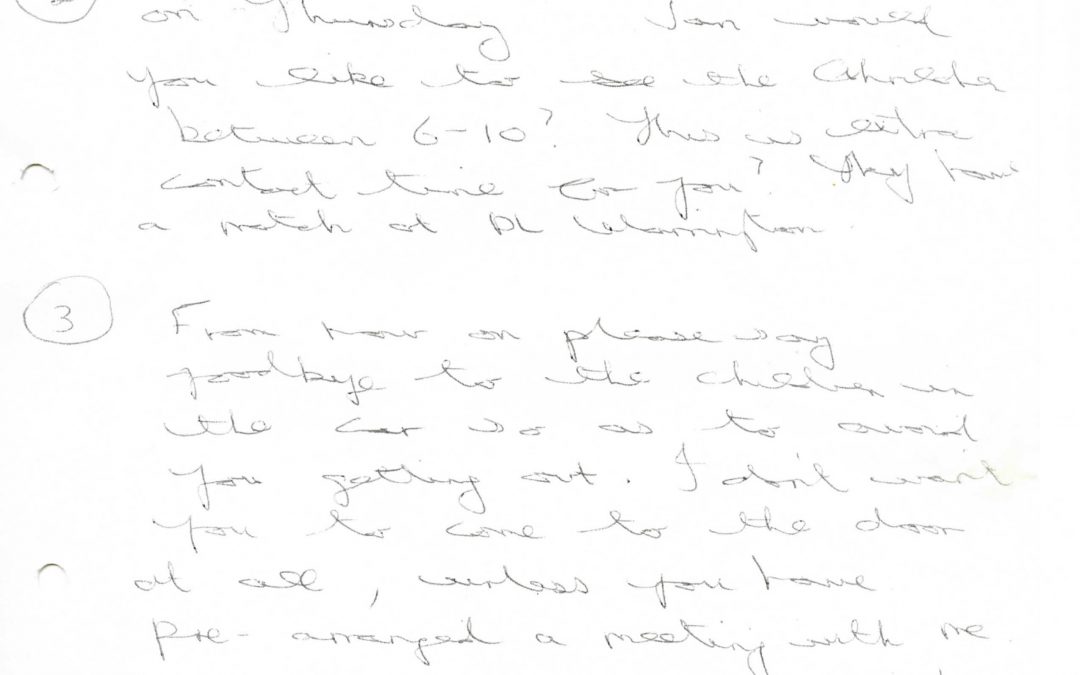 on Thursday Ian would
you like to see the Children
between 6-10? This is extra
contact time for you? They have
a match at DL Warrington.
3 From now on please say
goodbye to the children in
the car so as to avoid
you getting out. I don't want
you to come to the door
at all, unless you have
pre-arranged a meeting with me